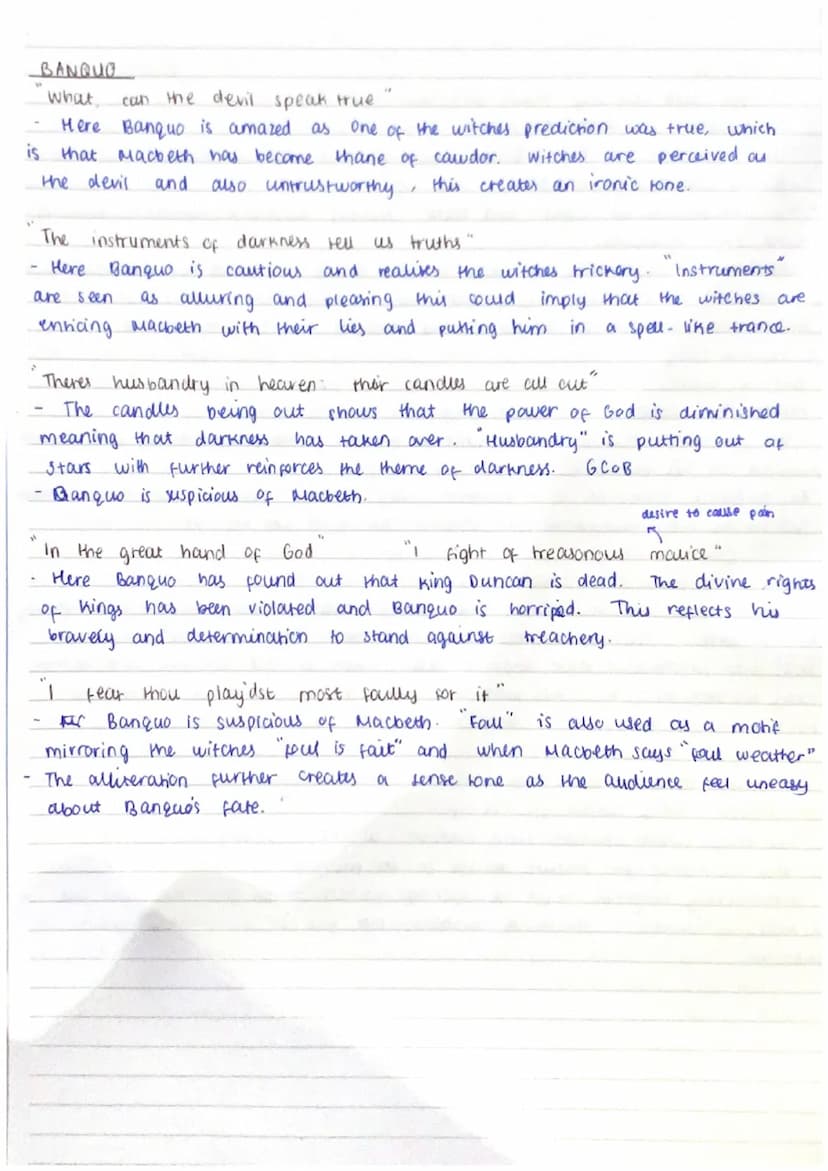 BANQUO
"What, can the devil speak true"
- Here Banquo is amazed as one of the witches prediction was true, which
is that Macbeth has become thane of cawdor. Witches are perceived as
the devil and also untrustworthy, this creates an ironic tone.
"The instruments of darkness tell us truths"
- Here Banquo is cautious and realises the witches trickery. "Instruments"
are seen as alluring and pleasing this could imply that the witches are
enticing Macbeth with their lies and putting him in a spell-like trance.
"Theres husbandry in heaven: their candles are all out"
- The candles being out shows that the power of God is diminished
meaning that darkness has taken over. "Husbandry" is putting out of
stars with further reinforces the theme of darkness. GCOB
- Banquo is suspicious of Macbeth.
desire to cause pain
"In the great hand of God" "I fight of treasonous malice"
- Here Banquo has found out that King Duncan is dead. The divine rights
of Kings has been violated and Banquo is horrified. This reflects his
bravely and determination to stand against treachery.
"I fear thou play'dst most foully for it"
- Banquo is suspicious of Macbeth. "Foul" is also used as a motif
mirroring the witches "foul is fair" and when Macbeth says "foul weather"
- The alliteration further creates a tense tone as the audience feel uneasy
about Banquo's fate.